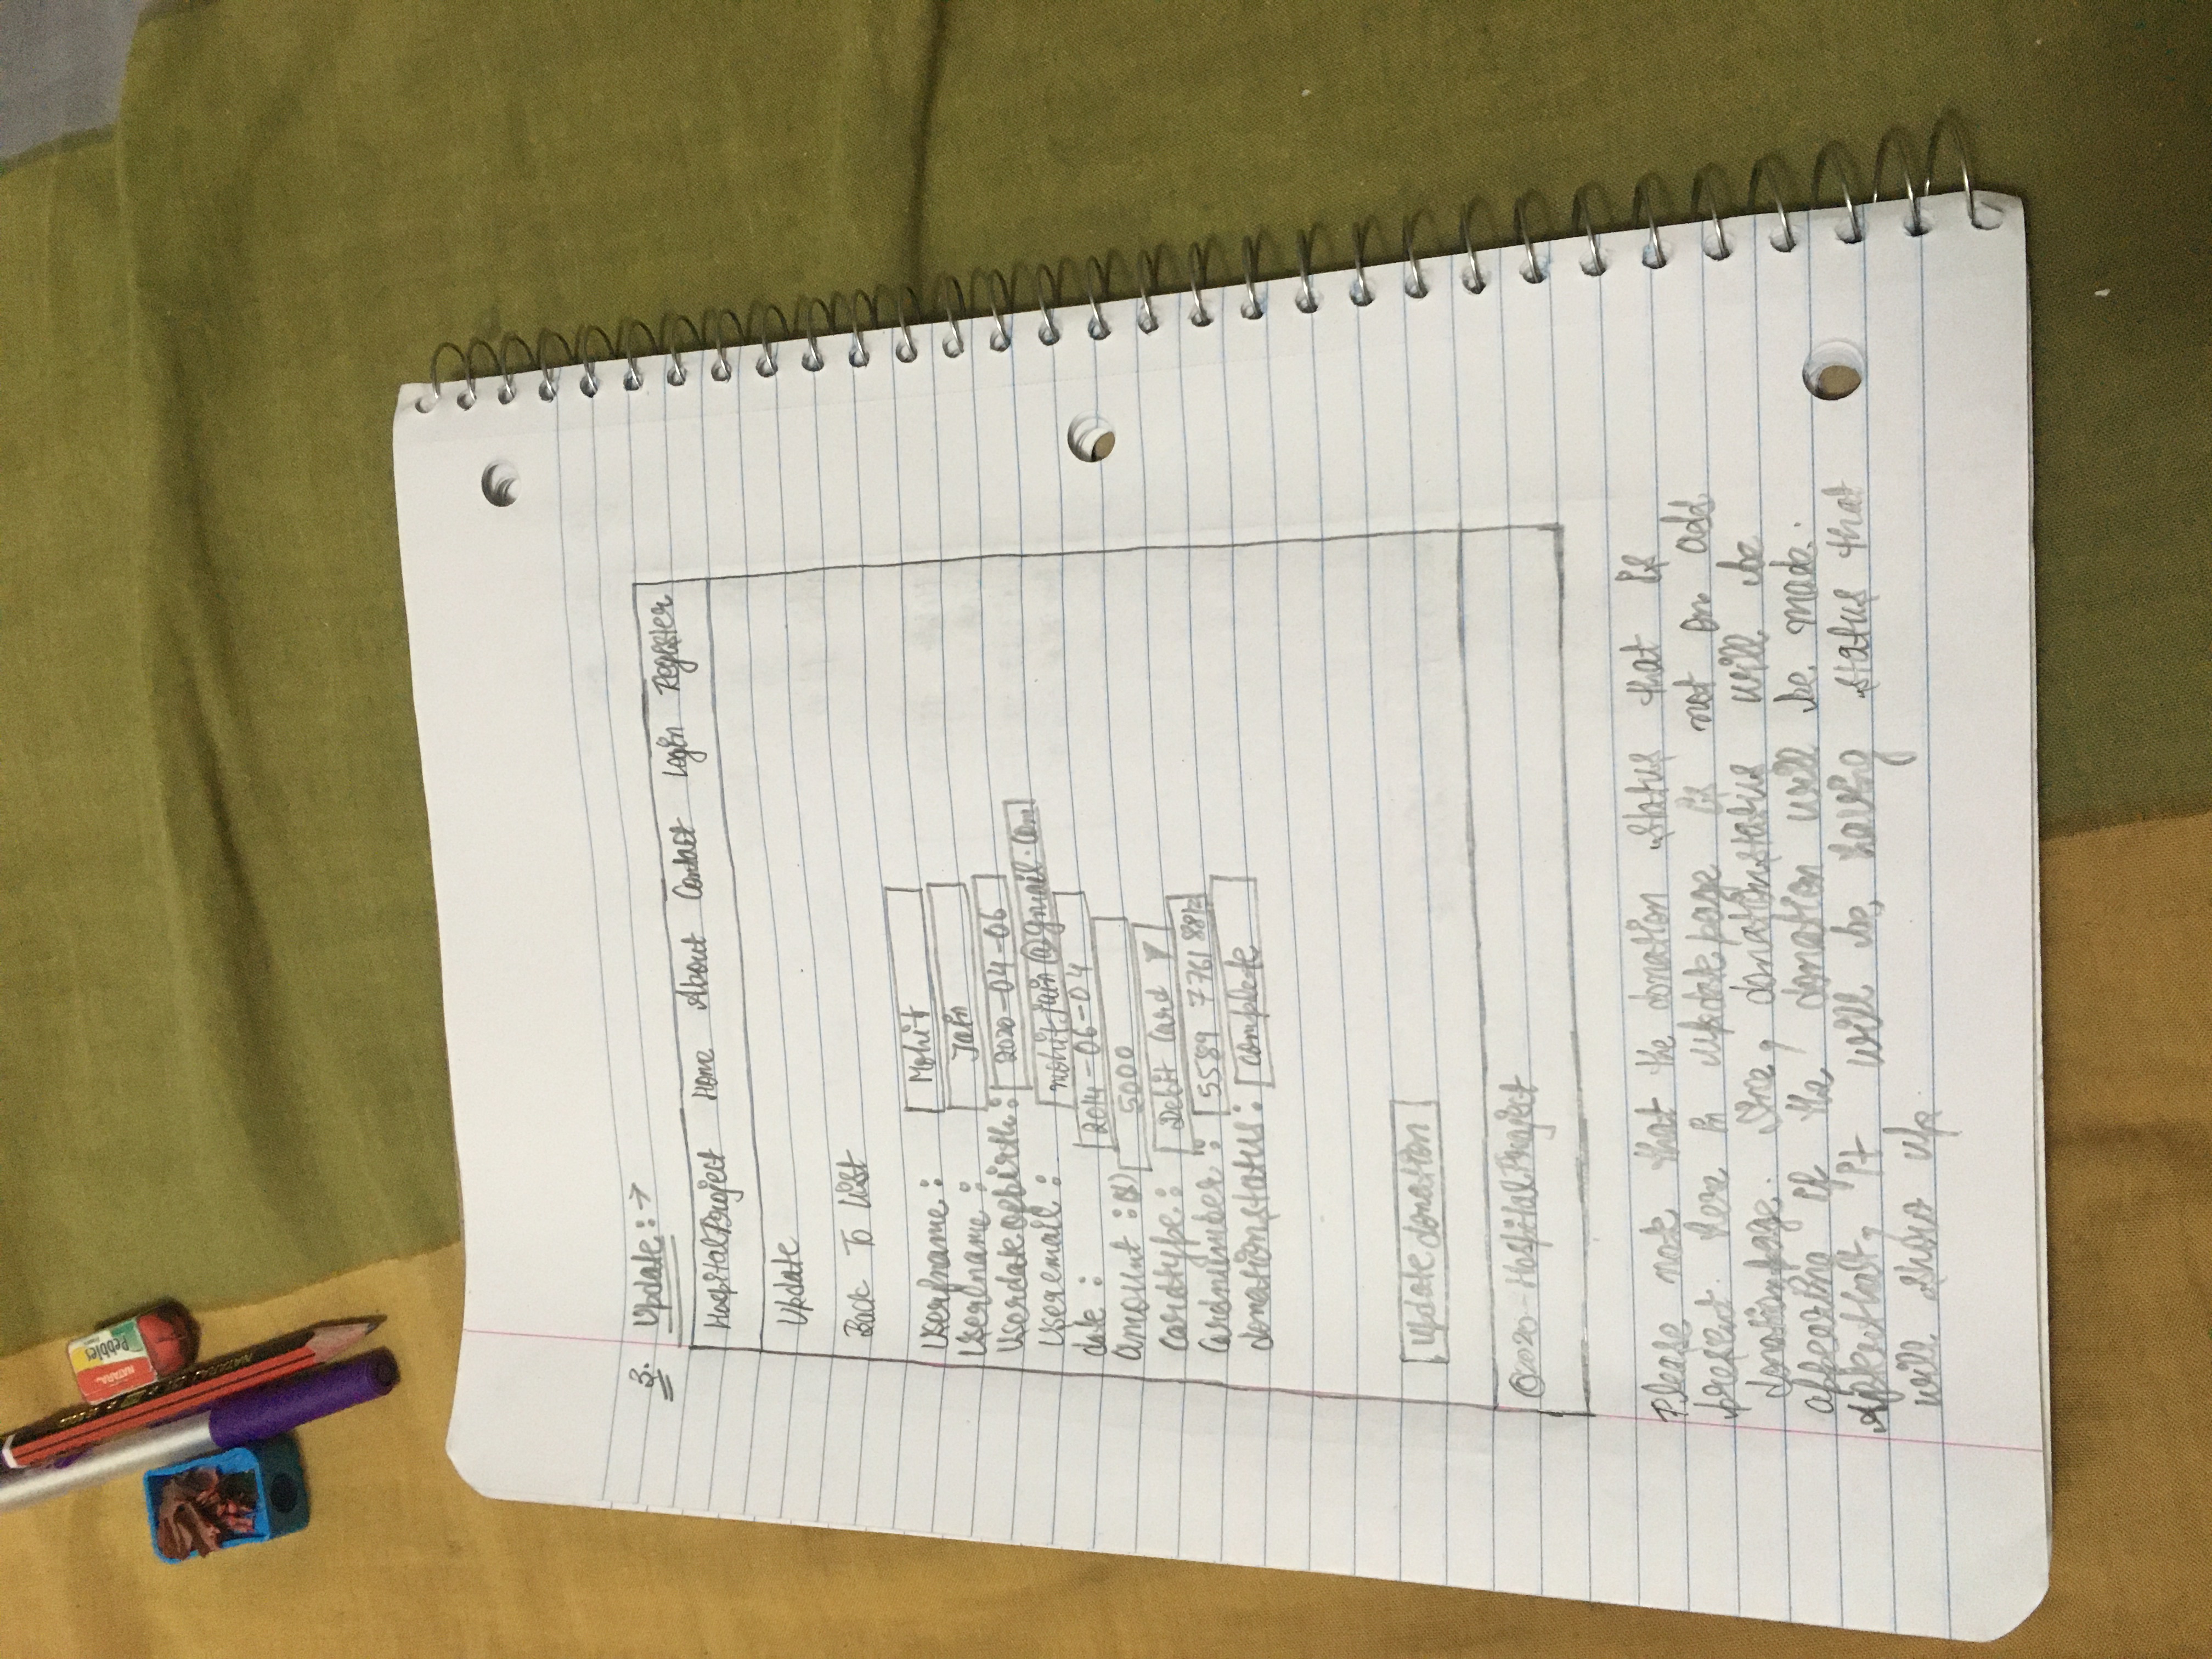 NATARAJ
Pebbles
3. Update :→
HospitalProject Home About Contact Login Register
Update
Back To List
Userfname : Mohit
Userlname : Jain
Userdateofbirth : 2020-04-06
Useremail : mohitjain@gmail.com
date : 2014-06-04
amount : 5000
cardtype : Debit Card ▼
Cardnumber : 5589 7761 8812
donationstatus : complete
Update donation
©2020-HospitalProject
Please note that the donation status that is
present here in update page is not on add
donationpage. donationstatus will be
appearing if the donation will be made.
Afterthat, it will be having status that
will show up.